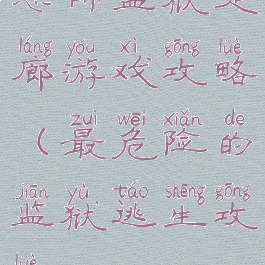 láng yóu xì gōng lüè
廊游戏攻略
zuì wēi xiǎn de
（最危险的
jiān yù táo shēng gōng
监狱逃生攻
lüè